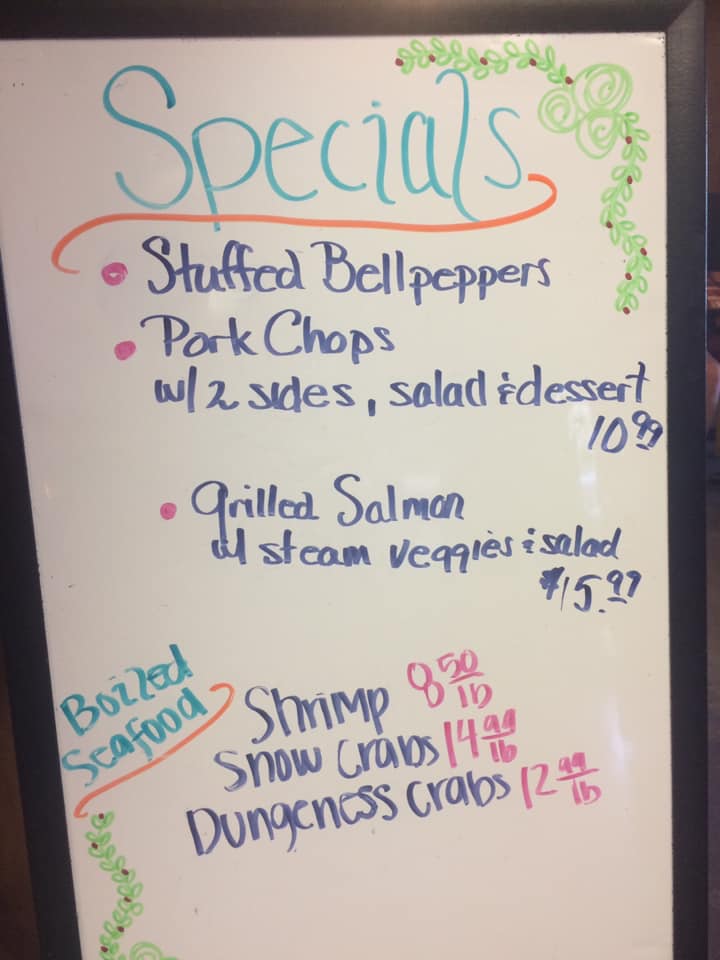 Specials
• Stuffed Bellpeppers
• Pork Chops
w/ 2 sides, salad & dessert
10.99
• Grilled Salmon
w/ steam veggies & salad
$15.99
Boiled
Seafood
Shrimp 8.50/lb
Snow Crabs 14.99/lb
Dungeness Crabs 12.99/lb